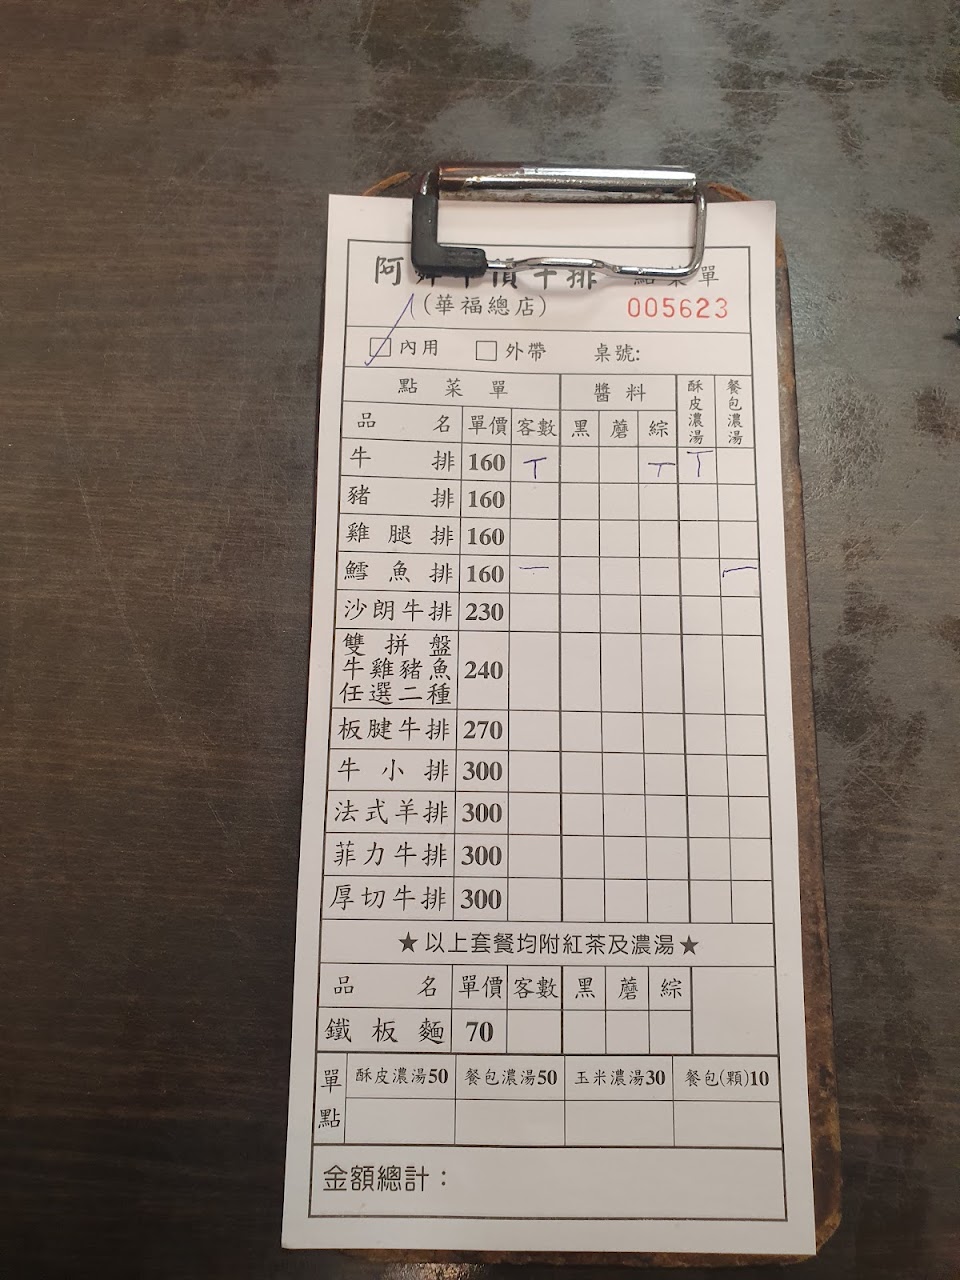 阿 排 點菜單
(華福總店) 005623
內用 外帶 桌號:
點菜單 醬料 酥皮濃湯 餐包濃湯
品名 單價 客數 黑 蘑 綜
牛排 160 T T T
豬排 160
雞腿排 160
鱈魚排 160 一 一
沙朗牛排 230
雙拼盤
牛雞豬魚 240
任選二種
板腱牛排 270
牛小排 300
法式羊排 300
菲力牛排 300
厚切牛排 300
★以上套餐均附紅茶及濃湯★
品名 單價 客數 黑 蘑 綜
鐵板麵 70
單點 酥皮濃湯50 餐包濃湯50 玉米濃湯30 餐包(顆)10
金額總計: